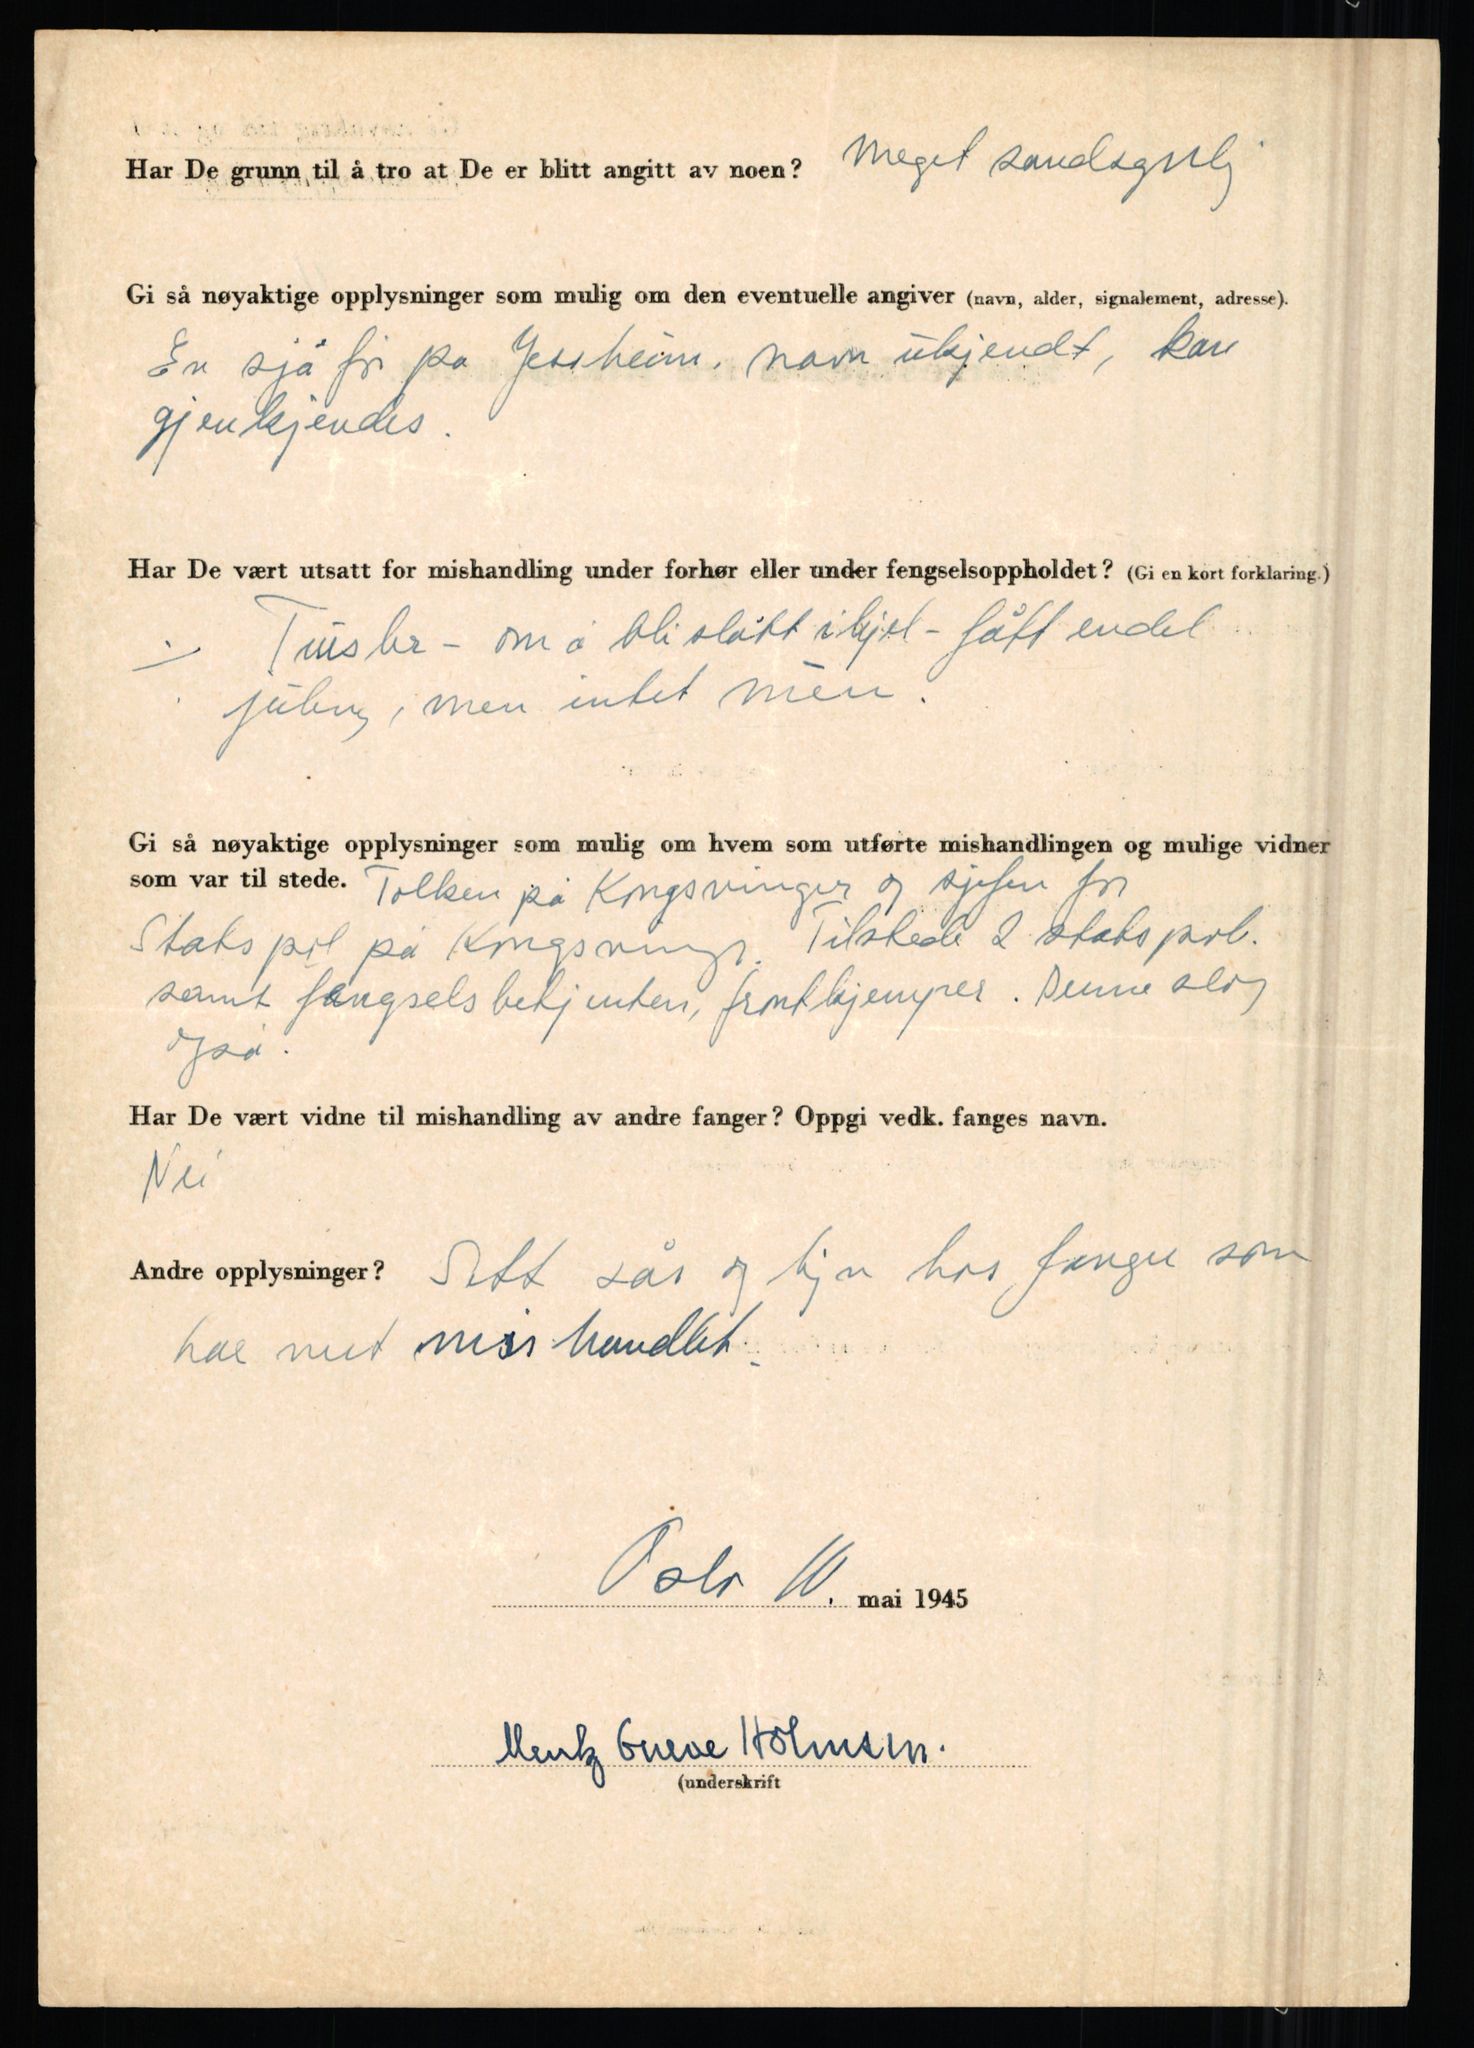 Har De grunn til å tro at De er blitt angitt av noen? Meget sandsynlig
Gi så nøyaktige opplysninger som mulig om den eventuelle angiver (navn, alder, signalement, adresse).
En sjåfør på Jessheim, navn ukjendt, kan
gjenkjendes.
Har De vært utsatt for mishandling under forhør eller under fengselsoppholdet? (Gi en kort forklaring.)
Trusler - om å bli slått ihjel - fått endel
juling, men intet mén.
Gi så nøyaktige opplysninger som mulig om hvem som utførte mishandlingen og mulige vidner
som var til stede. Tolken på Kongsvinger og sjefen for
Statspol på Kongsvinger. Tilstede 2 statspol.
samt fængselsbetjenten, frontkjemper. Denne slog
også.
Har De vært vidne til mishandling av andre fanger? Oppgi vedk. fanges navn.
Nei
Andre opplysninger? Sett sår og hos fanger som
har mishandlet.
Oslo 10. mai 1945
Greve Holmsen.
(underskrift